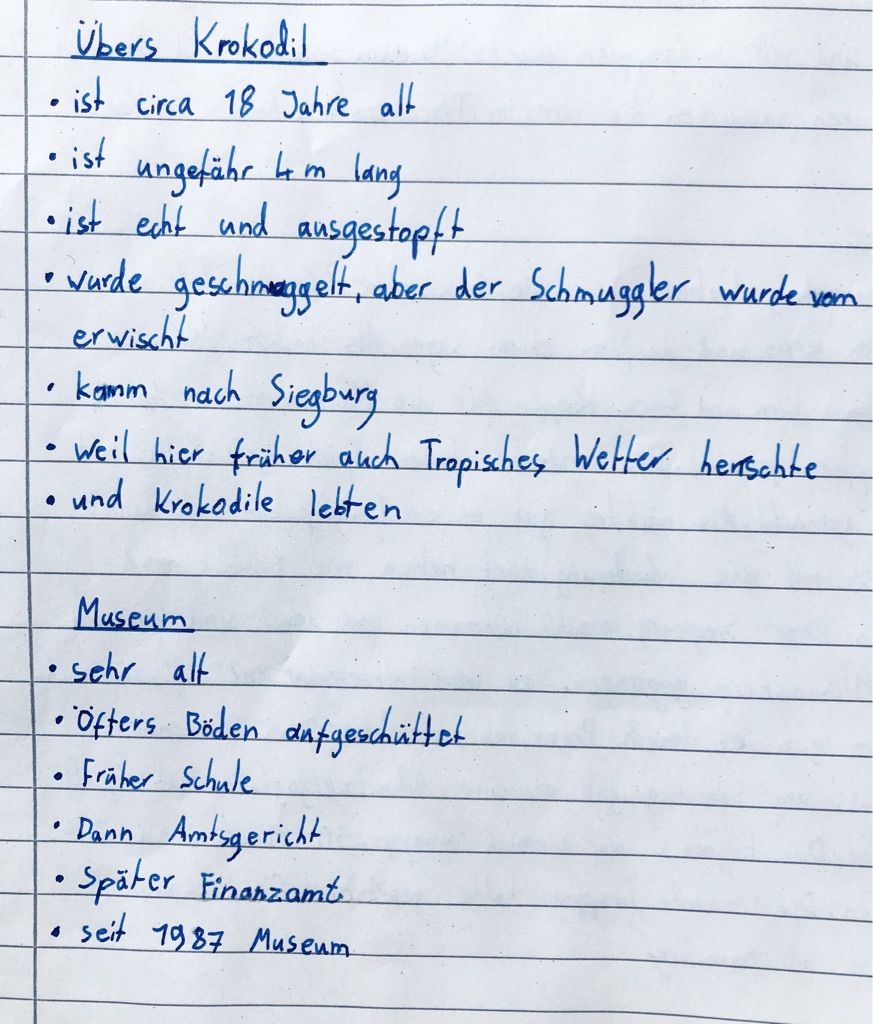 Übers Krokodil
• ist circa 18 Jahre alt
• ist ungefähr 4 m lang
• ist echt und ausgestopft
• wurde geschmuggelt, aber der Schmuggler wurde vom
erwischt
• kamm nach Siegburg
• weil hier früher auch Tropisches Wetter herrschte
• und Krokodile lebten
Museum
• sehr alt
• Öfters Böden aufgeschüttet
• Früher Schule
• Dann Amtsgericht
• Später Finanzamt
• seit 1987 Museum